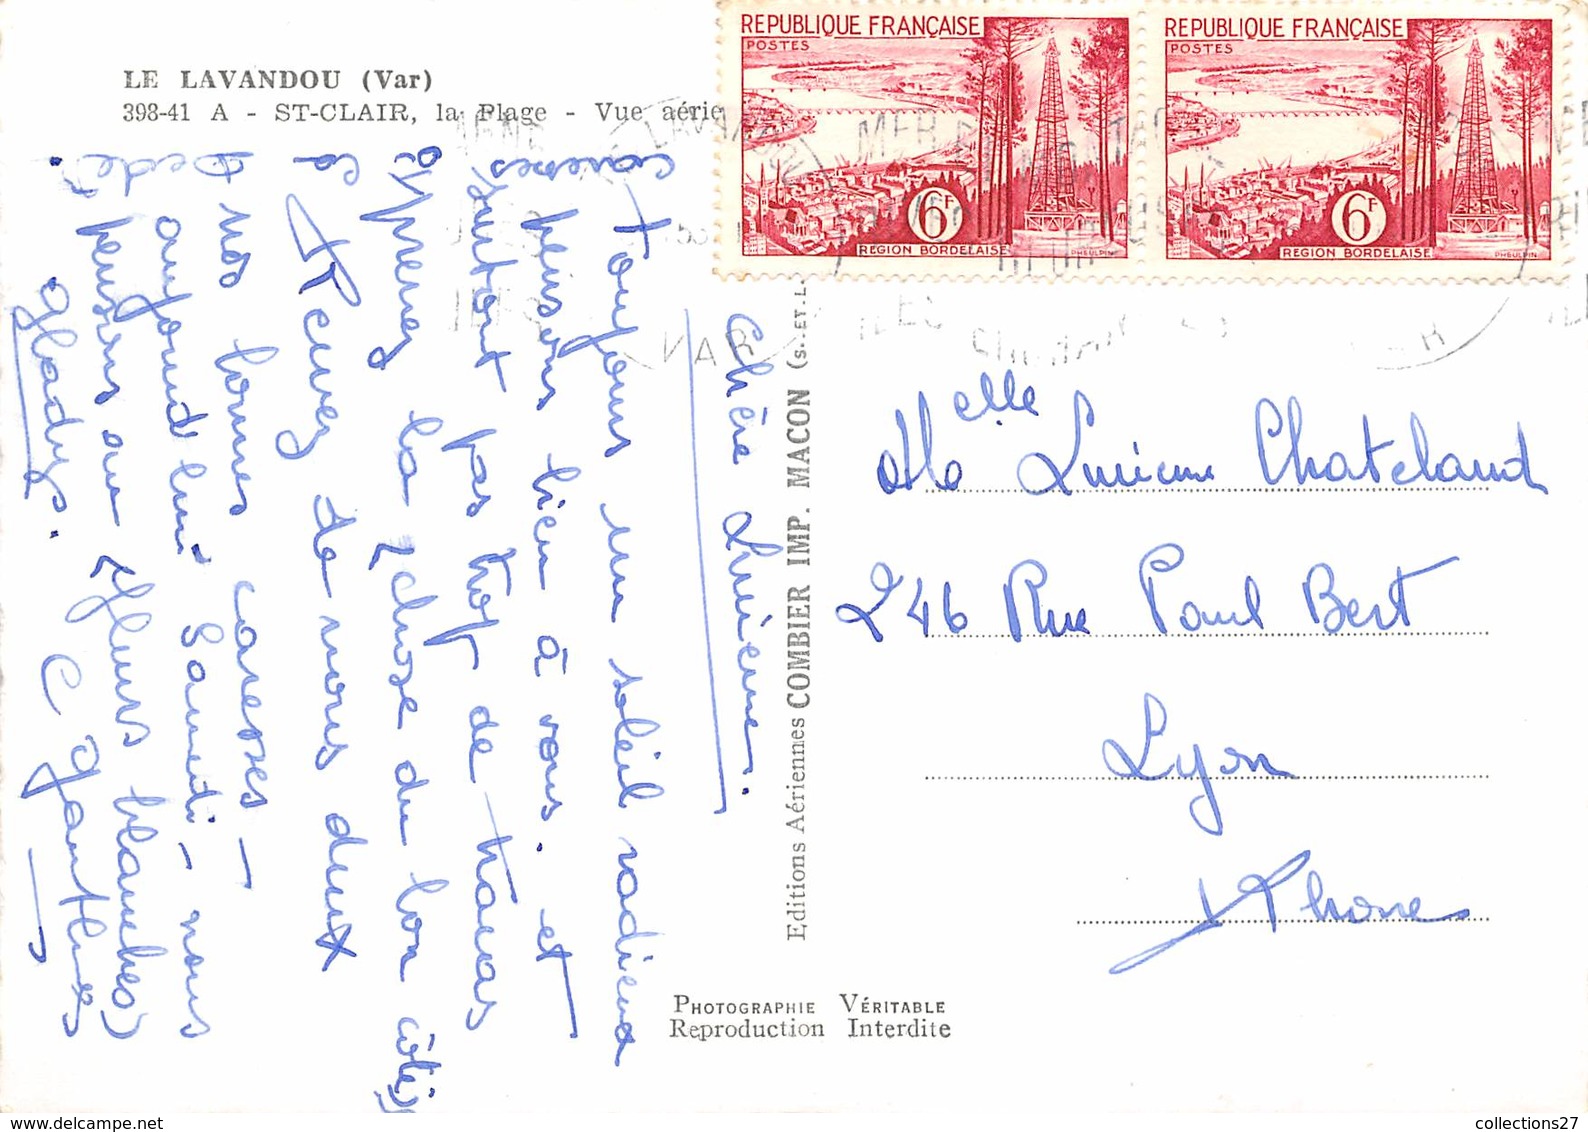 LE LAVANDOU (Var)
398-41 A - ST-CLAIR, la Plage - Vue aérie
REPUBLIQUE FRANÇAISE
POSTES
6F
REGION BORDELAISE
PHEULPIN
REPUBLIQUE FRANÇAISE
POSTES
6F
REGION BORDELAISE
PHEULPIN
VAR
Chère Lucienne.
Toujours un soleil radieux
pensons bien à vous. et
surtout pas trop de tracas
Prenez la chose du bon côté
Recevez de nous deux
nos bonnes caresses -
aujourd'hui Samedi - nous
pensions aux fleurs blanches)
Gladys. C Gauthier
caresses
la
Dédé
Editions Aériennes COMBIER IMP. MACON (S.-ET-L.
Melle Lucienne Chateland
246 Rue Paul Bert
Lyon
Rhone
PHOTOGRAPHIE VÉRITABLE
Reproduction Interdite
collections27